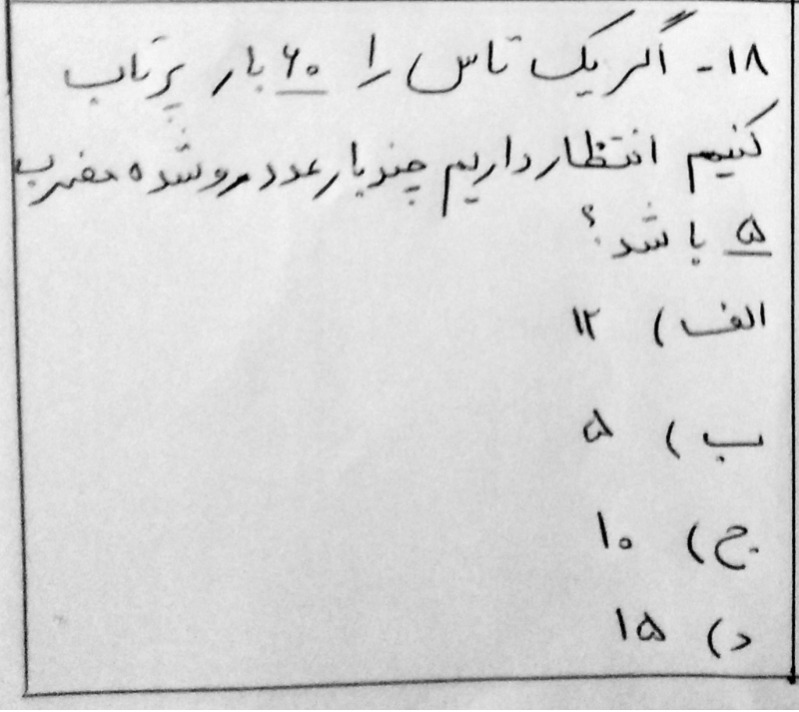 ۱۸- اگر یک تاس را ۶۰ بار پرتاب
کنیم انتظار داریم چند بار عدد رو شده مضرب
۵ باشد؟
الف) ۱۲
ب) ۵
ج) ۱۰
د) ۱۵